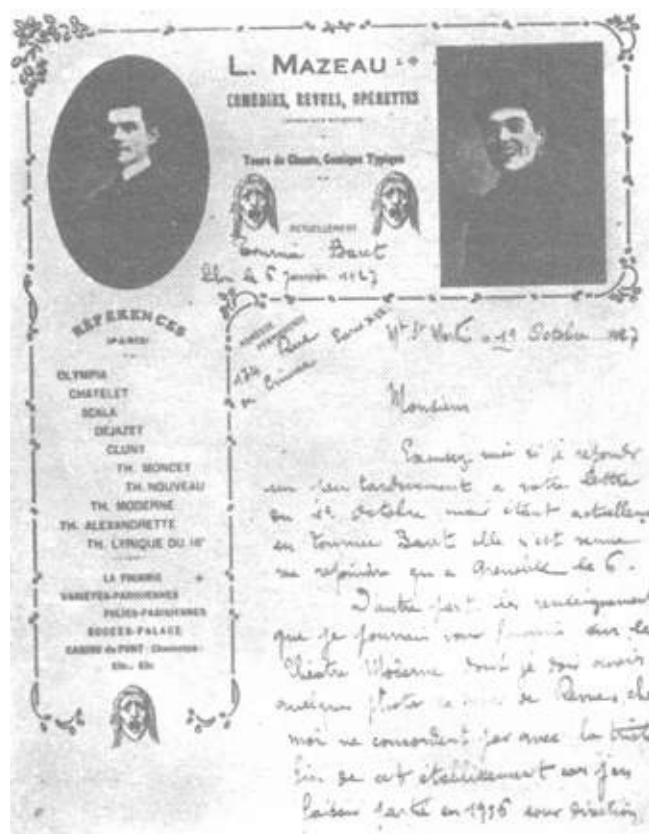 L. MAZEAU
COMÉDIES, REVUES, OPÉRETTES
Tours de Chants, Comique Typique
ACTUELLEMENT
Tournée Baret
6 Janvier
RÉFÉRENCES
(PARIS)
OLYMPIA
CHATELET
SCALA
DEJAZET
CLUNY
TH. MONCEY
TH. NOUVEAU
TH. MODERNE
TH. ALEXANDRETTE
TH. LYRIQUE DU 16e
LA FOURMIE
VARIÉTÉS-PARISIENNES
FOLIES-PARISIENNES
BOSSES-PALACE
CASINO du PONT
Etc., Etc
ADRESSE
PERMANENTE
174 Rue
Octobre
Monsieur
Excusez moi si je réponds
un peu tardivement a votre lettre
du Octobre mais étant actuellem
en tournée Baret elle n'est venue
me rejoindre qu'a Grenoble le 6.
D'autre part les renseignement
que je pourrais vous fournir sur le
Théâtre Moderne dont je dois avoir
quelques photos de Revues che
moi ne concordent pas avec la triste
fin de cet établissement car j'en
faisais partie en 1936 sous direction